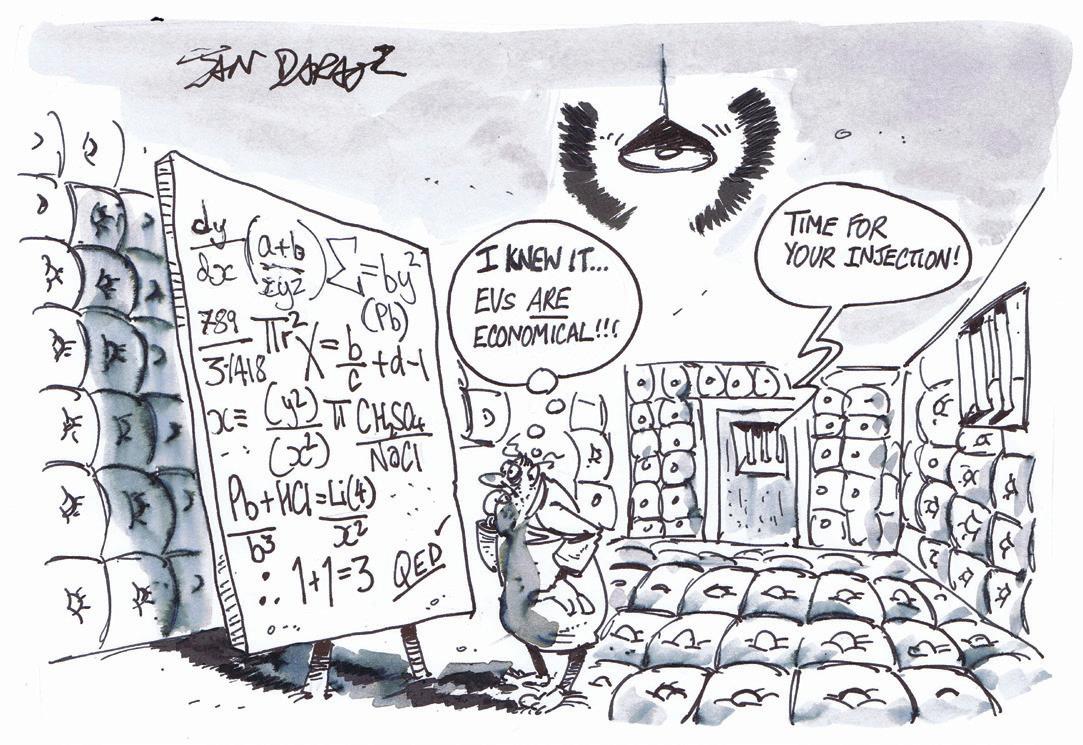 IAN DARAGZ
dy/dx (a+b/xyz) Σ = by²
(Pb)
789/3·1418 πr² X = b/c + d-1
x ≡ (y²)/(x²) π CH₃SO₄/NaCl
Pb + HCl/b³ = Li(4)/x²
∴ 1+1=3 QED
I KNEW IT...
EVs ARE
ECONOMICAL!!!
TIME FOR
YOUR INJECTION!